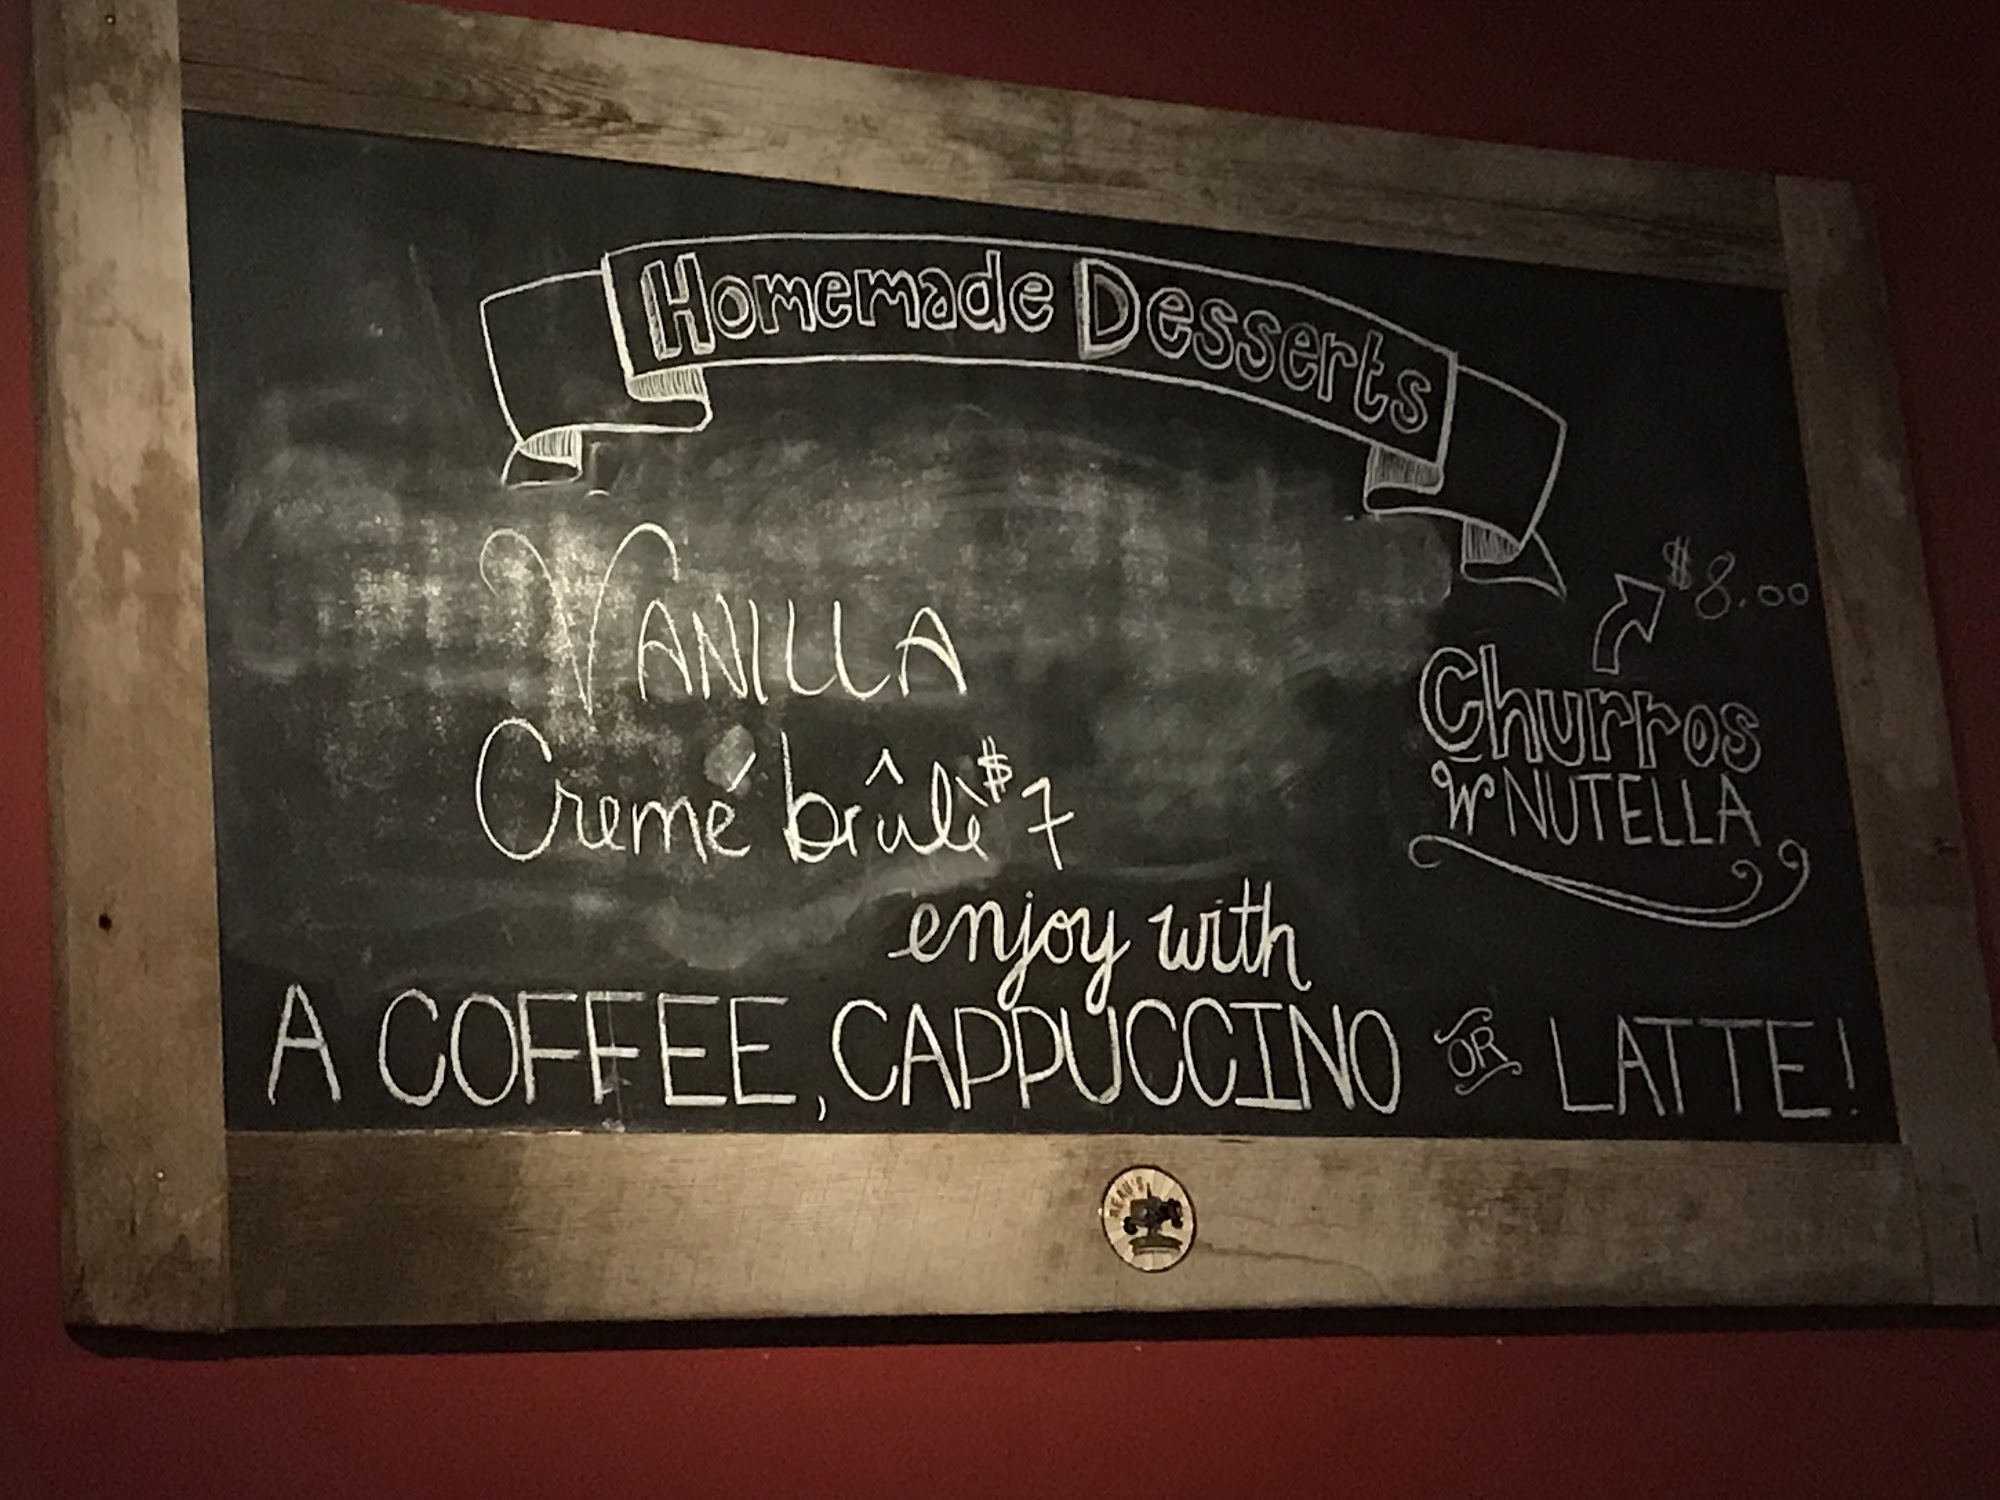 Homemade Desserts
VANILLA
Cremé brûlè $7
$8.00
Churros
W NUTELLA
enjoy with
A COFFEE, CAPPUCCINO OR LATTE!
BEAU'S